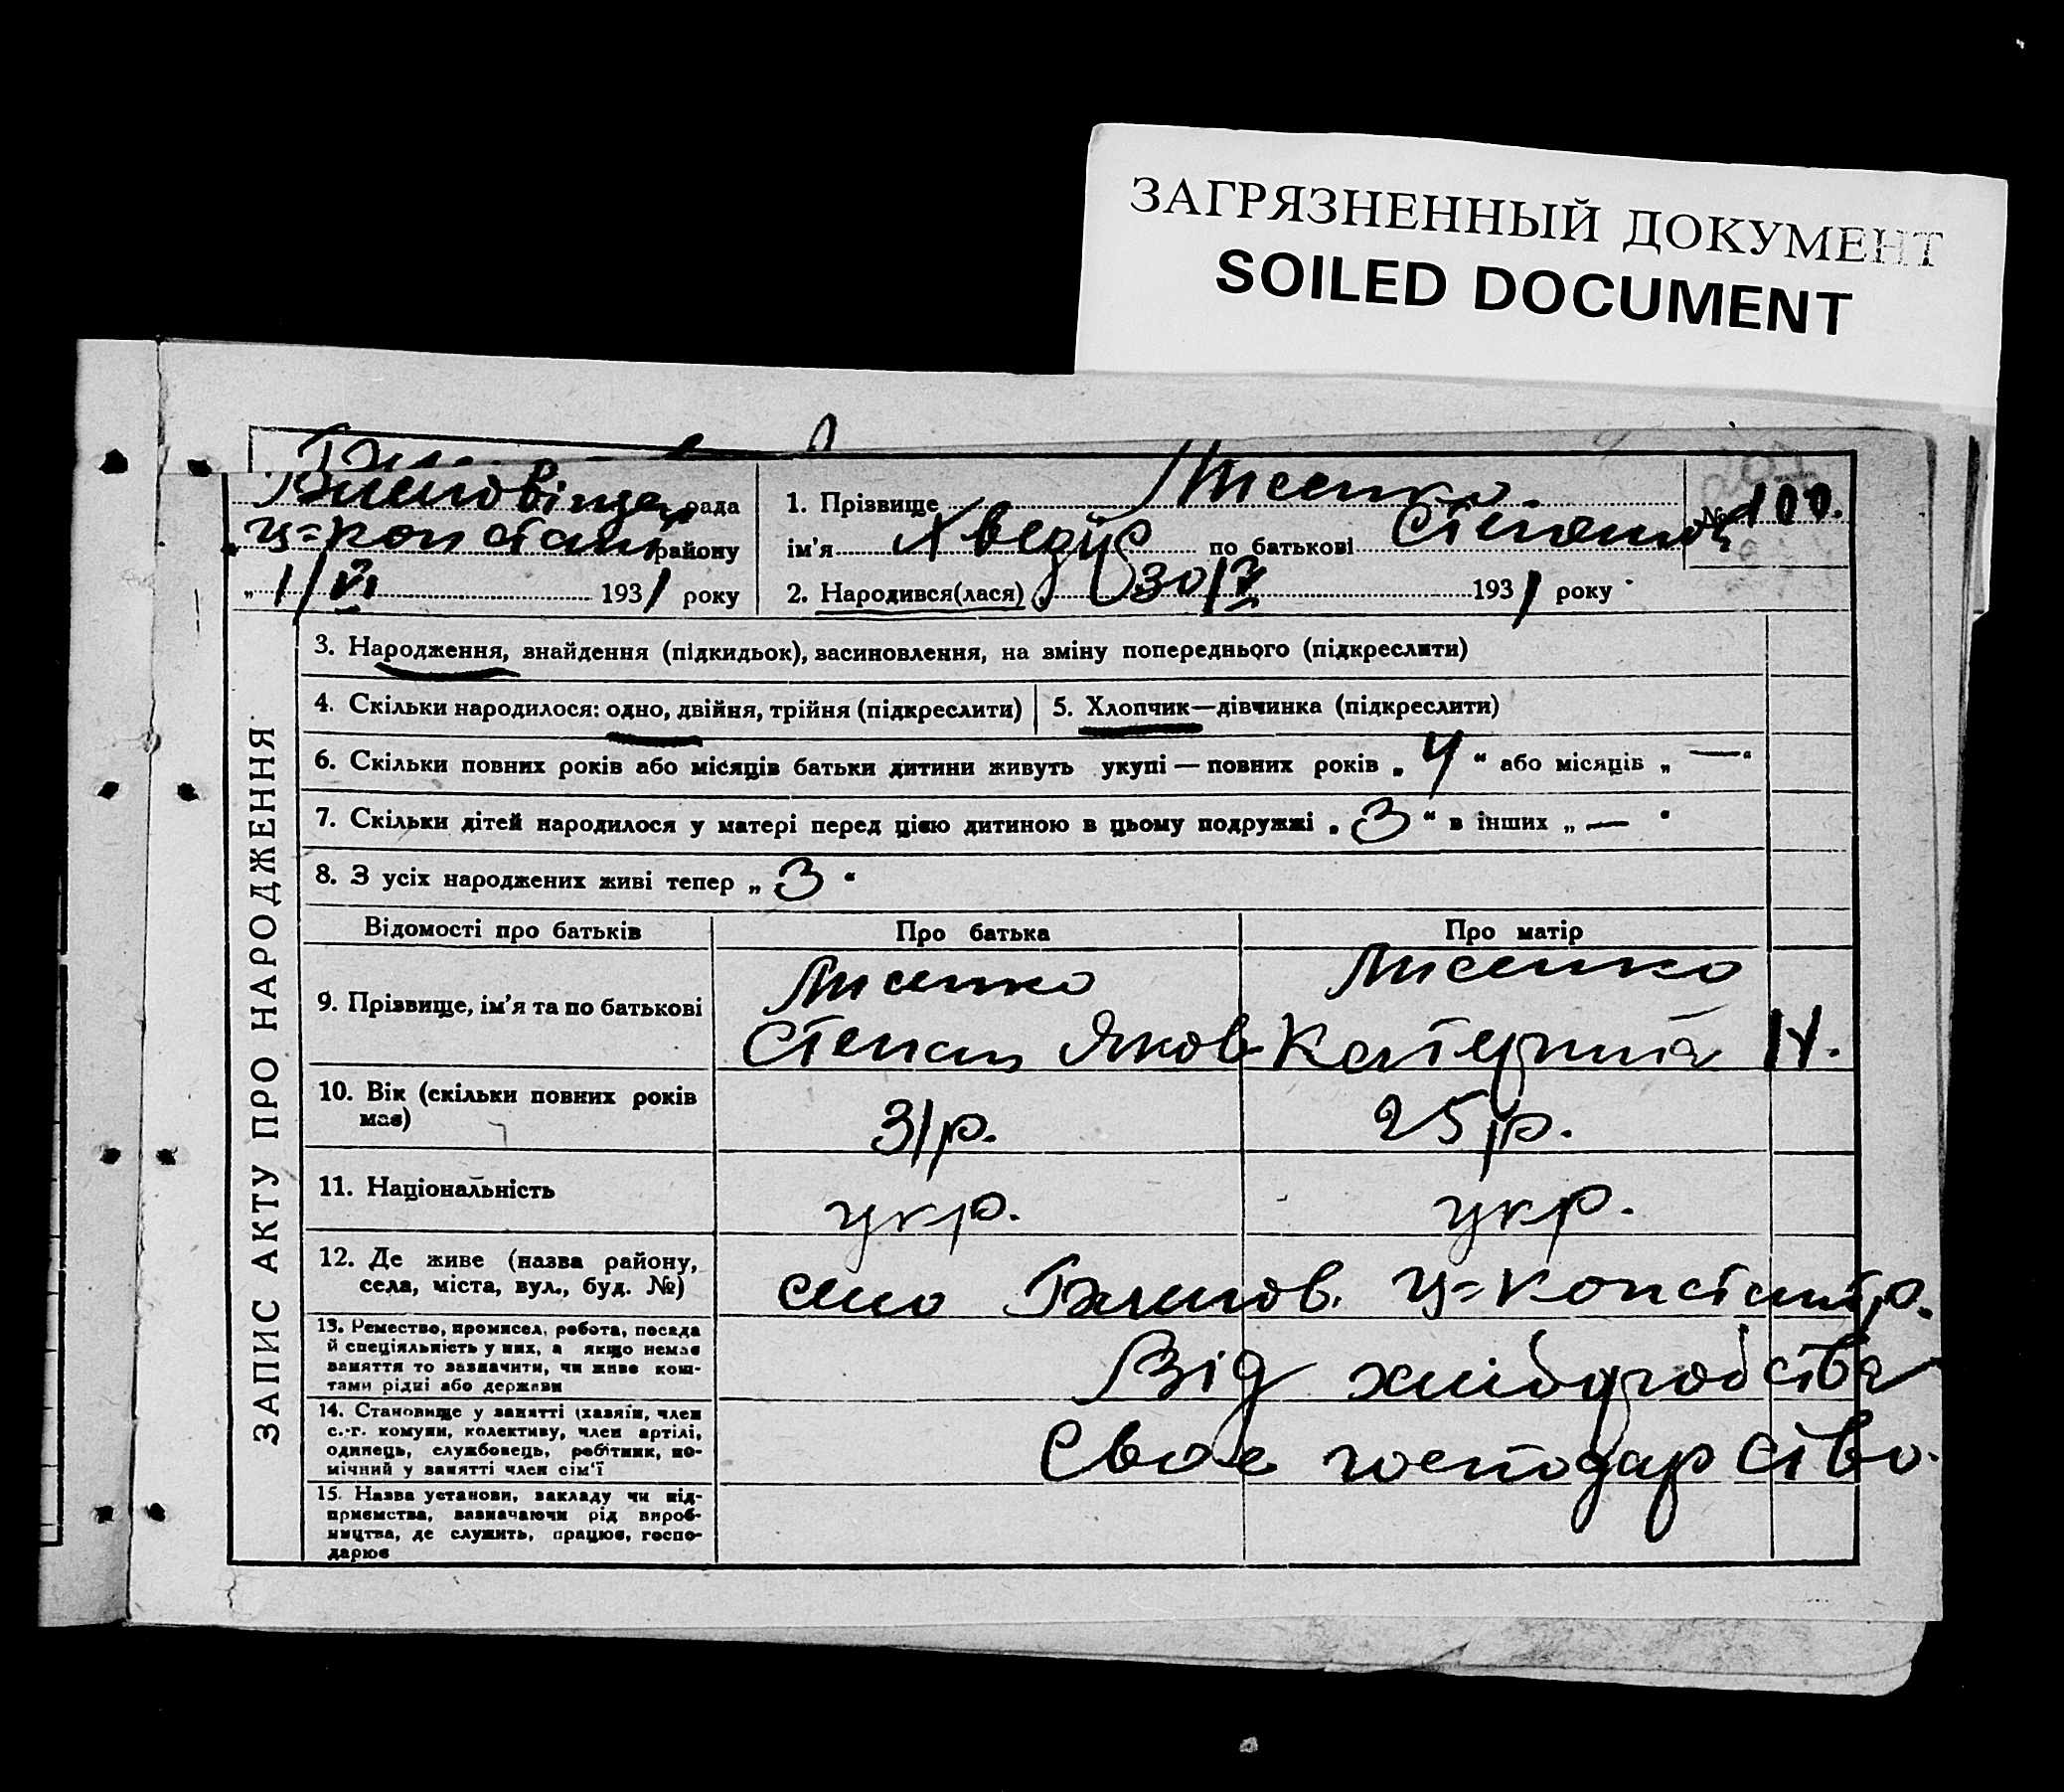 ЗАГРЯЗНЕННЫЙ ДОКУМЕНТ
SOILED DOCUMENT
рада
1. Прізвище Лисенко.
№ 100.
у=констант району
ім'я Хведір по батькові Степанов
„1/VI 1931 року
2. Народився(лася) „30/V 1931 року
ЗАПИС АКТУ ПРО НАРОДЖЕННЯ
3. Народження, знайдення (підкидьок), засиновлення, на зміну попереднього (підкреслити)
4. Скільки народилося: одно, двійня, трійня (підкреслити)
5. Хлопчик—дівчинка (підкреслити)
6. Скільки повних років або місяців батьки дитини живуть укупі — повних років „4“ або місяців „—“
7. Скільки дітей народилося у матері перед цією дитиною в цьому подружжі „3“ в інших „—“
8. З усіх народжених живі тепер „3“
Відомості про батьків
Про батька
Про матір
9. Прізвище, ім'я та по батькові
Лисенко
Степан Яков
Лисенко
Катерина И.
10. Вік (скільки повних років
має)
31 р.
25 р.
11. Національність
укр.
укр.
12. Де живе (назва району,
села, міста, вул., буд. №)
село у=констант р.
13. Ремество, промисел, робота, посада
й спеціяльність у них, а якщо немає
заняття то зазначити, чи живе кош-
тами рідні або держави
Від хліборобства
14. Становище у занятті (хазяїн, член
с.-г. комуни, колективу, член артілі,
одинець, службовець, робітник, по-
мічний у занятті член сім'ї
Своє господарство.
15. Назва установи, закладу чи під-
приємства, зазначаючи рід вироб-
ництва, де служить, працює, госпо-
дарює